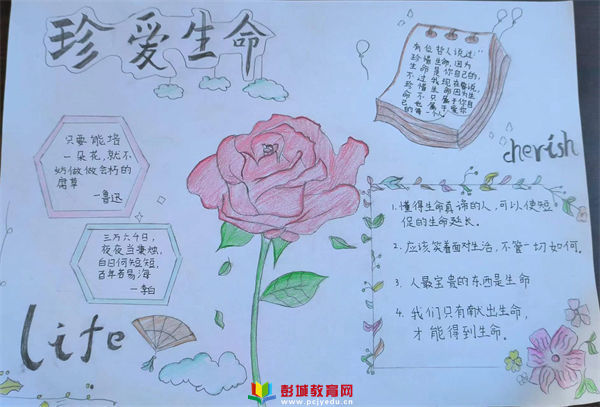 珍爱生命
有位哲人说过:"
珍惜生命,因为
生命是你自己的,
不过我现在要说,
珍惜生命因为生
命不只属于你自
己也属于爱你
的每一个人
cherish
只要能培
一朵花,就不
妨做做会朽的
腐草
—鲁迅
三万六千日,
夜夜当秉烛,
白日何短短,
百年苦易海
—李白
life
1.懂得生命真谛的人,可以使短
促的生命延长。
2.应该笑着面对生活,不管一切如何。
3.人最宝贵的东西是生命
4.我们只有献出生命,
才能得到生命。
彭城教育网
www.pcjyedu.cn